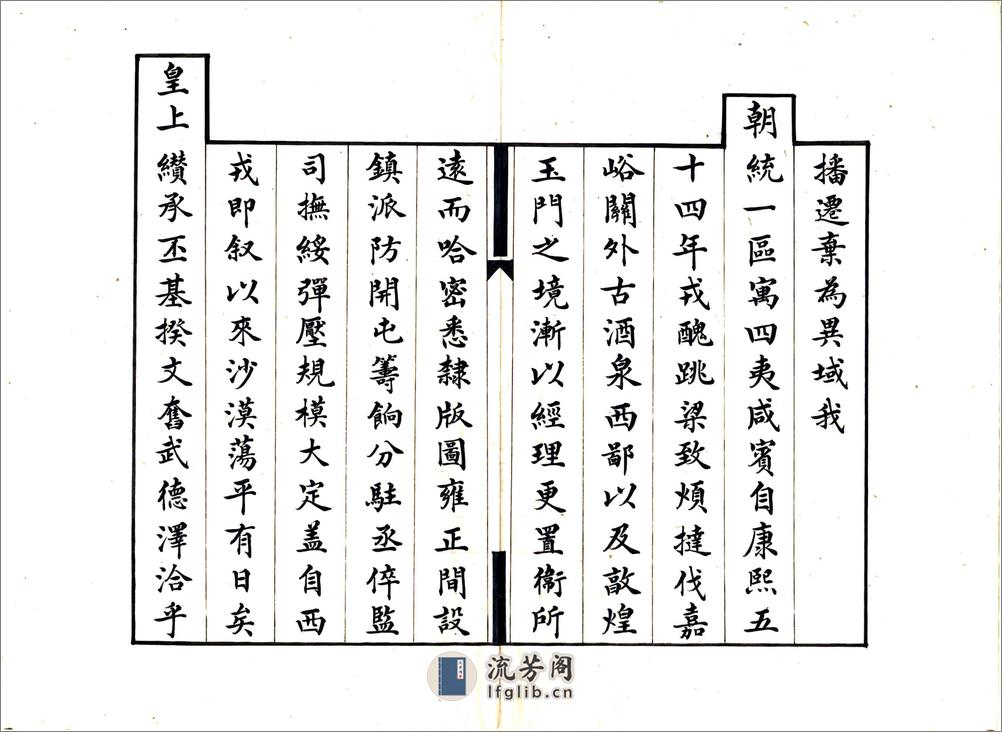 播遷棄為異域我
朝統一區寓四夷咸賓自康熙五
十四年戎醜跳梁致煩撻伐嘉
峪關外古酒泉西鄙以及敦煌
玉門之境漸以經理更置衞所
遠而哈密悉隸版圖雍正間設
鎮派防開屯籌餉分駐丞倅監
司撫綏彈壓規模大定盖自西
戎即叙以來沙漠蕩平有日矣
皇上纘承丕基揆文奮武德澤洽乎
流芳阁
lfglib.cn